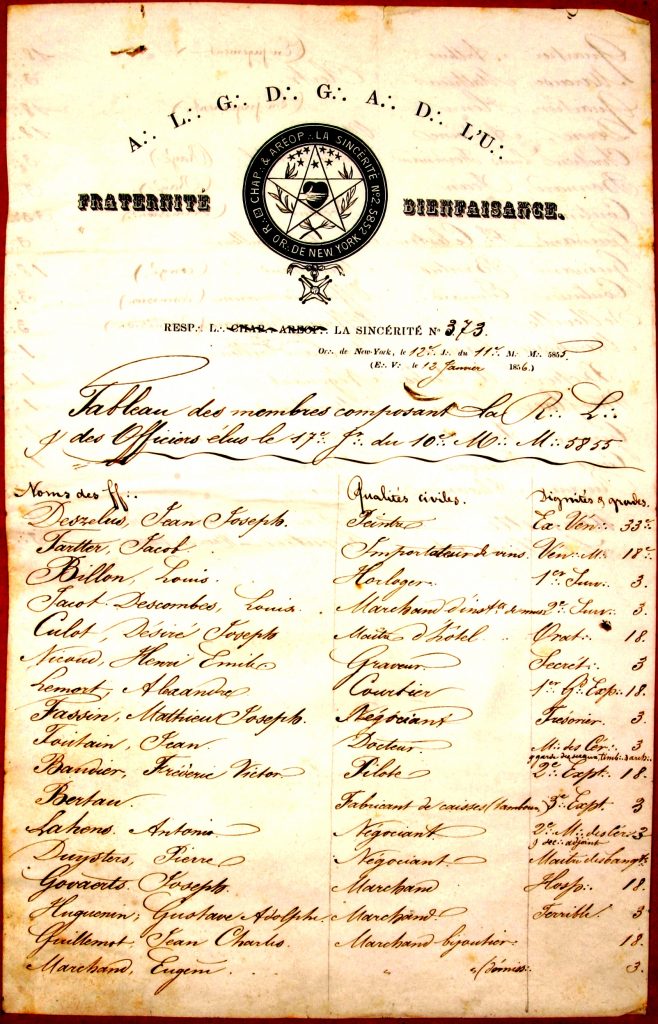 A∴ L∴ G∴ D∴ G∴ A∴ D∴ L'U∴
R∴ ▭ CHAP∴ & AREOP∴ LA SINCERITÉ Nº 2. 5852
OR∴ DE NEW YORK
FRATERNITÉ BIENFAISANCE.
RESP∴ L∴ CHAP∴ AREOP∴ LA SINCÉRITÉ Nº 373.
Or∴ de New-York, le 12e J∴ du 11e M∴ M∴ 5855
(E∴ V∴ le 12 Janvier 1856.)
Tableau des membres composant La R∴ L∴
& des Officiers élus le 17e J∴ du 10e M∴ M∴ 5855
Noms des ff∴ Qualités civiles. Dignités & grades.
Deszelus, Jean Joseph. Peintre Ex-Vén∴ 33e
Tartter, Jacob Importateur de vins Vén∴ M∴ 18e
Billon, Louis. Horloger 1er Surv∴ 3.
Jacot Descombes, Louis Marchand d'inst. de mus. 2e Surv∴ 3.
Culot, Désiré Joseph Maître d'hôtel Orat∴ 18.
Nicoud, Henri Emile Graveur Secrét∴ 3
Lemort, Alexandre Courtier 1er Gd Exp∴ 18.
Fassin, Mathieu Joseph. Négociant Trésorier. 3.
Toutain, Jean Docteur M∴ des Cér∴ 3
Baudier, Fréderic Victor Pilote 2e Expt∴ 18.
Bertau. Fabricant de caisses (tambour) 3e Expt 3
Lahens Antonio Négociant 2e M∴ des Cér∴ 3
& sec∴ adjoint
Duysters, Pierre Négociant Maitre des banqts
Govaerts Joseph Marchand Hosp∴ 18.
Huguenin, Gustave Adolphe Marchand Terrible 3
Guillemot, Jean Charles Marchand bijoutier 18.
Marchand, Eugène " " 3.